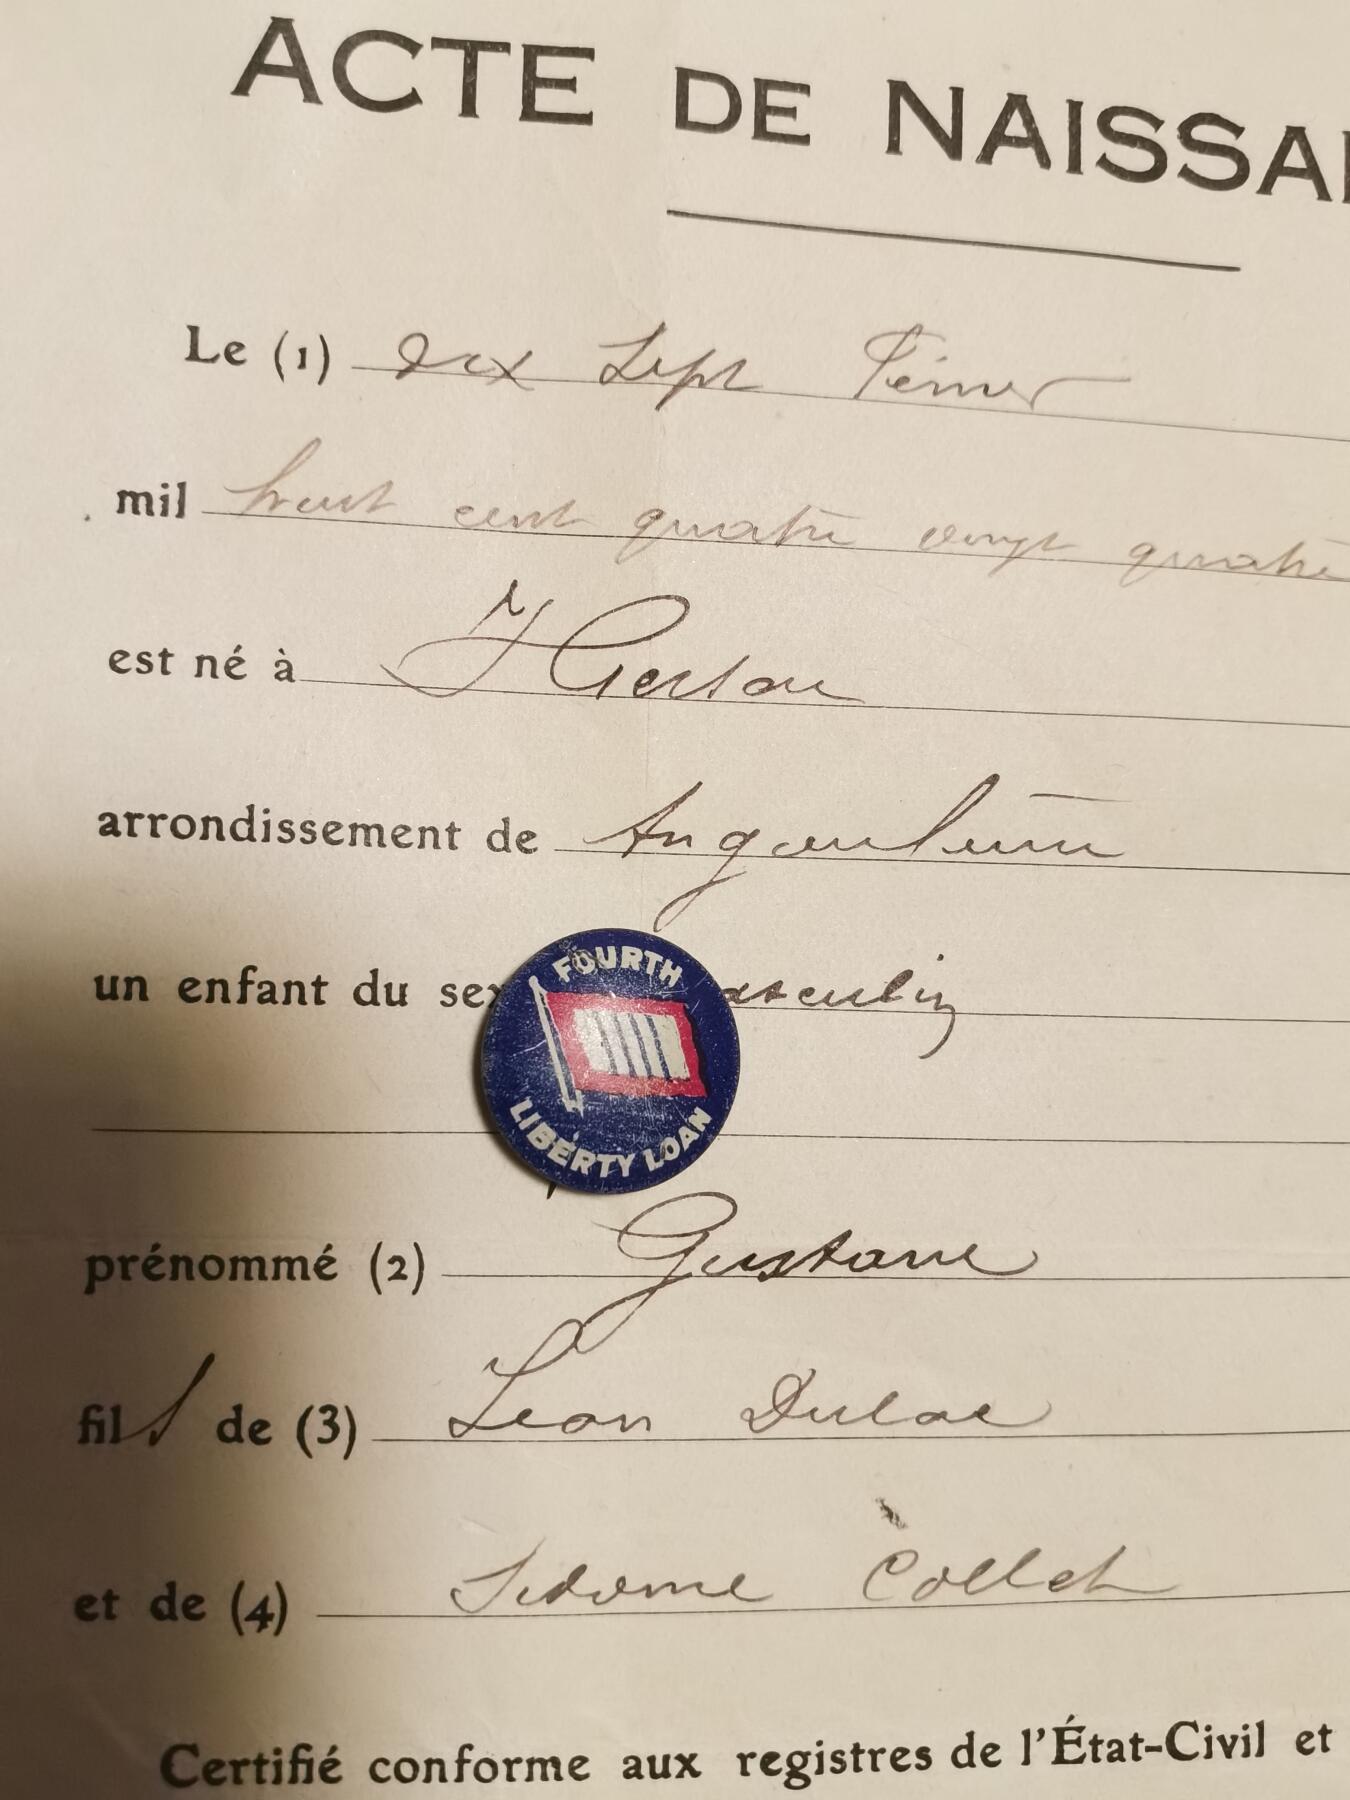 ACTE DE NAISSA
Le (1) dix sept Février
mil huit cent quatre vingt quatre
est né à
arrondissement de Angoulême
un enfant du sex asculin
FOURTH
LIBERTY LOAN
prénommé (2) Gustave
fils de (3) Léon Dulac
et de (4) Collet
Certifié conforme aux registres de l'État-Civil et